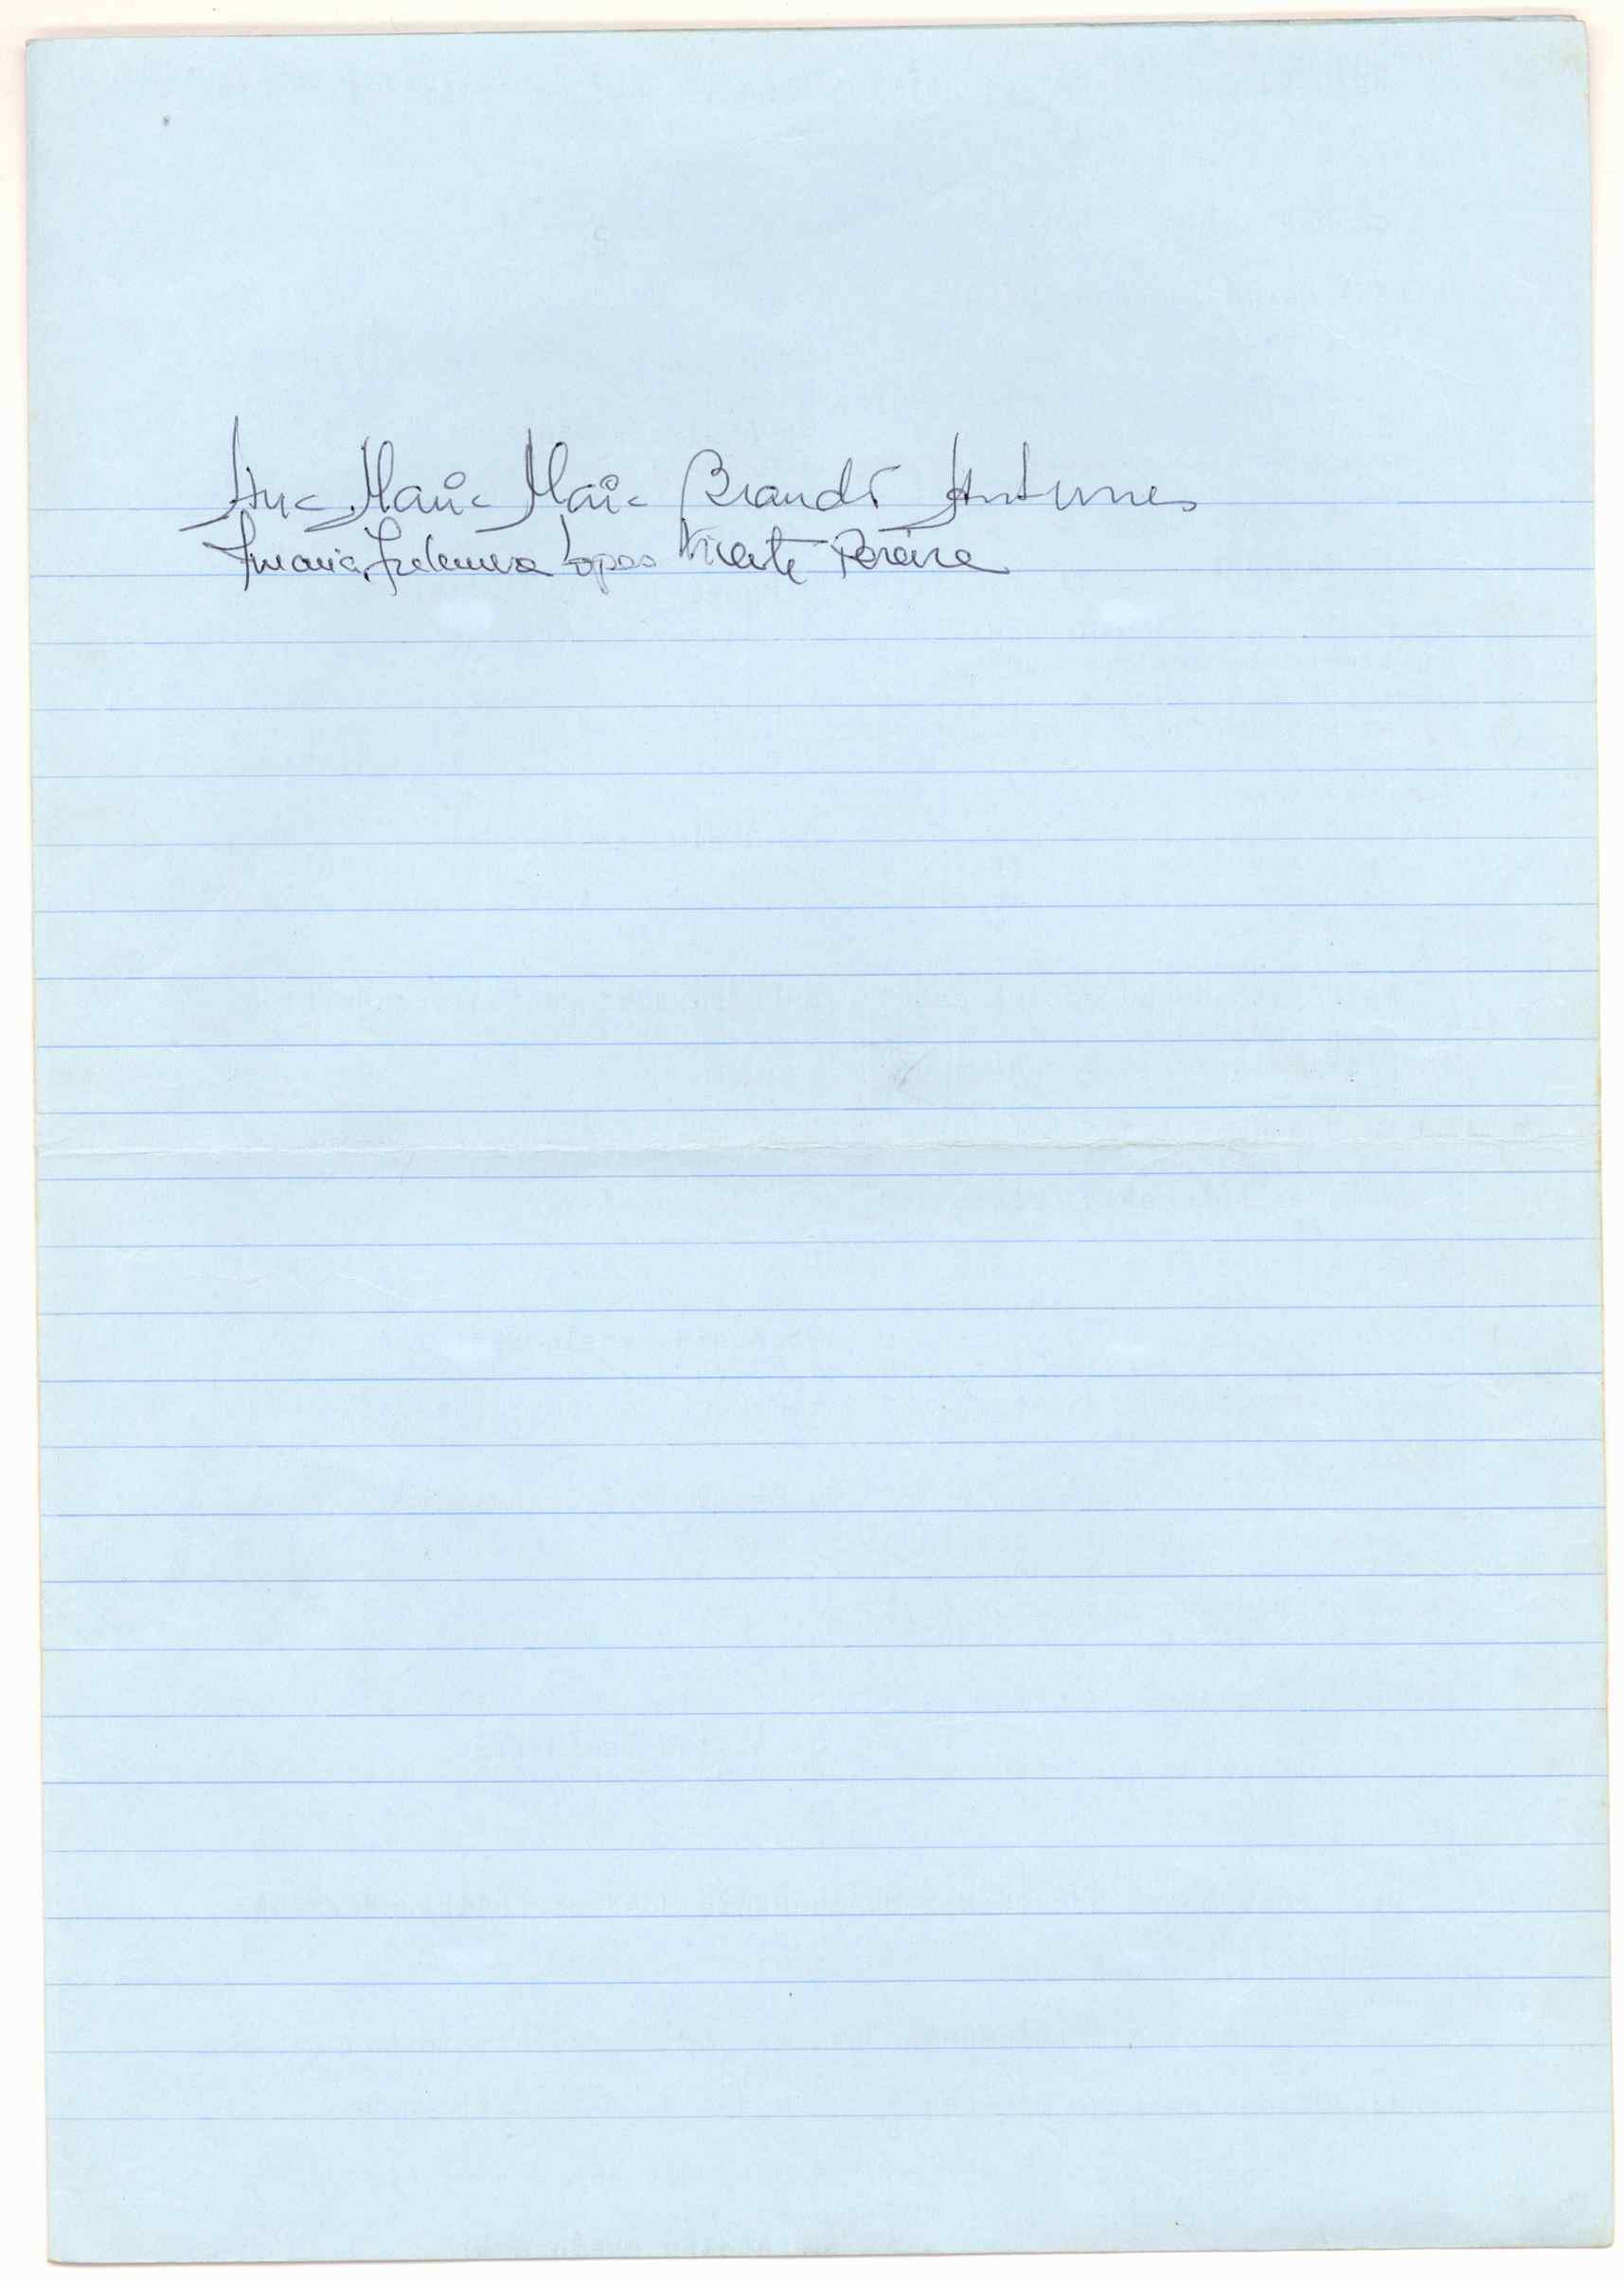 Ana Maria Maia Brandão Antunes
Maria Filomena Lopes Vicente Pereira